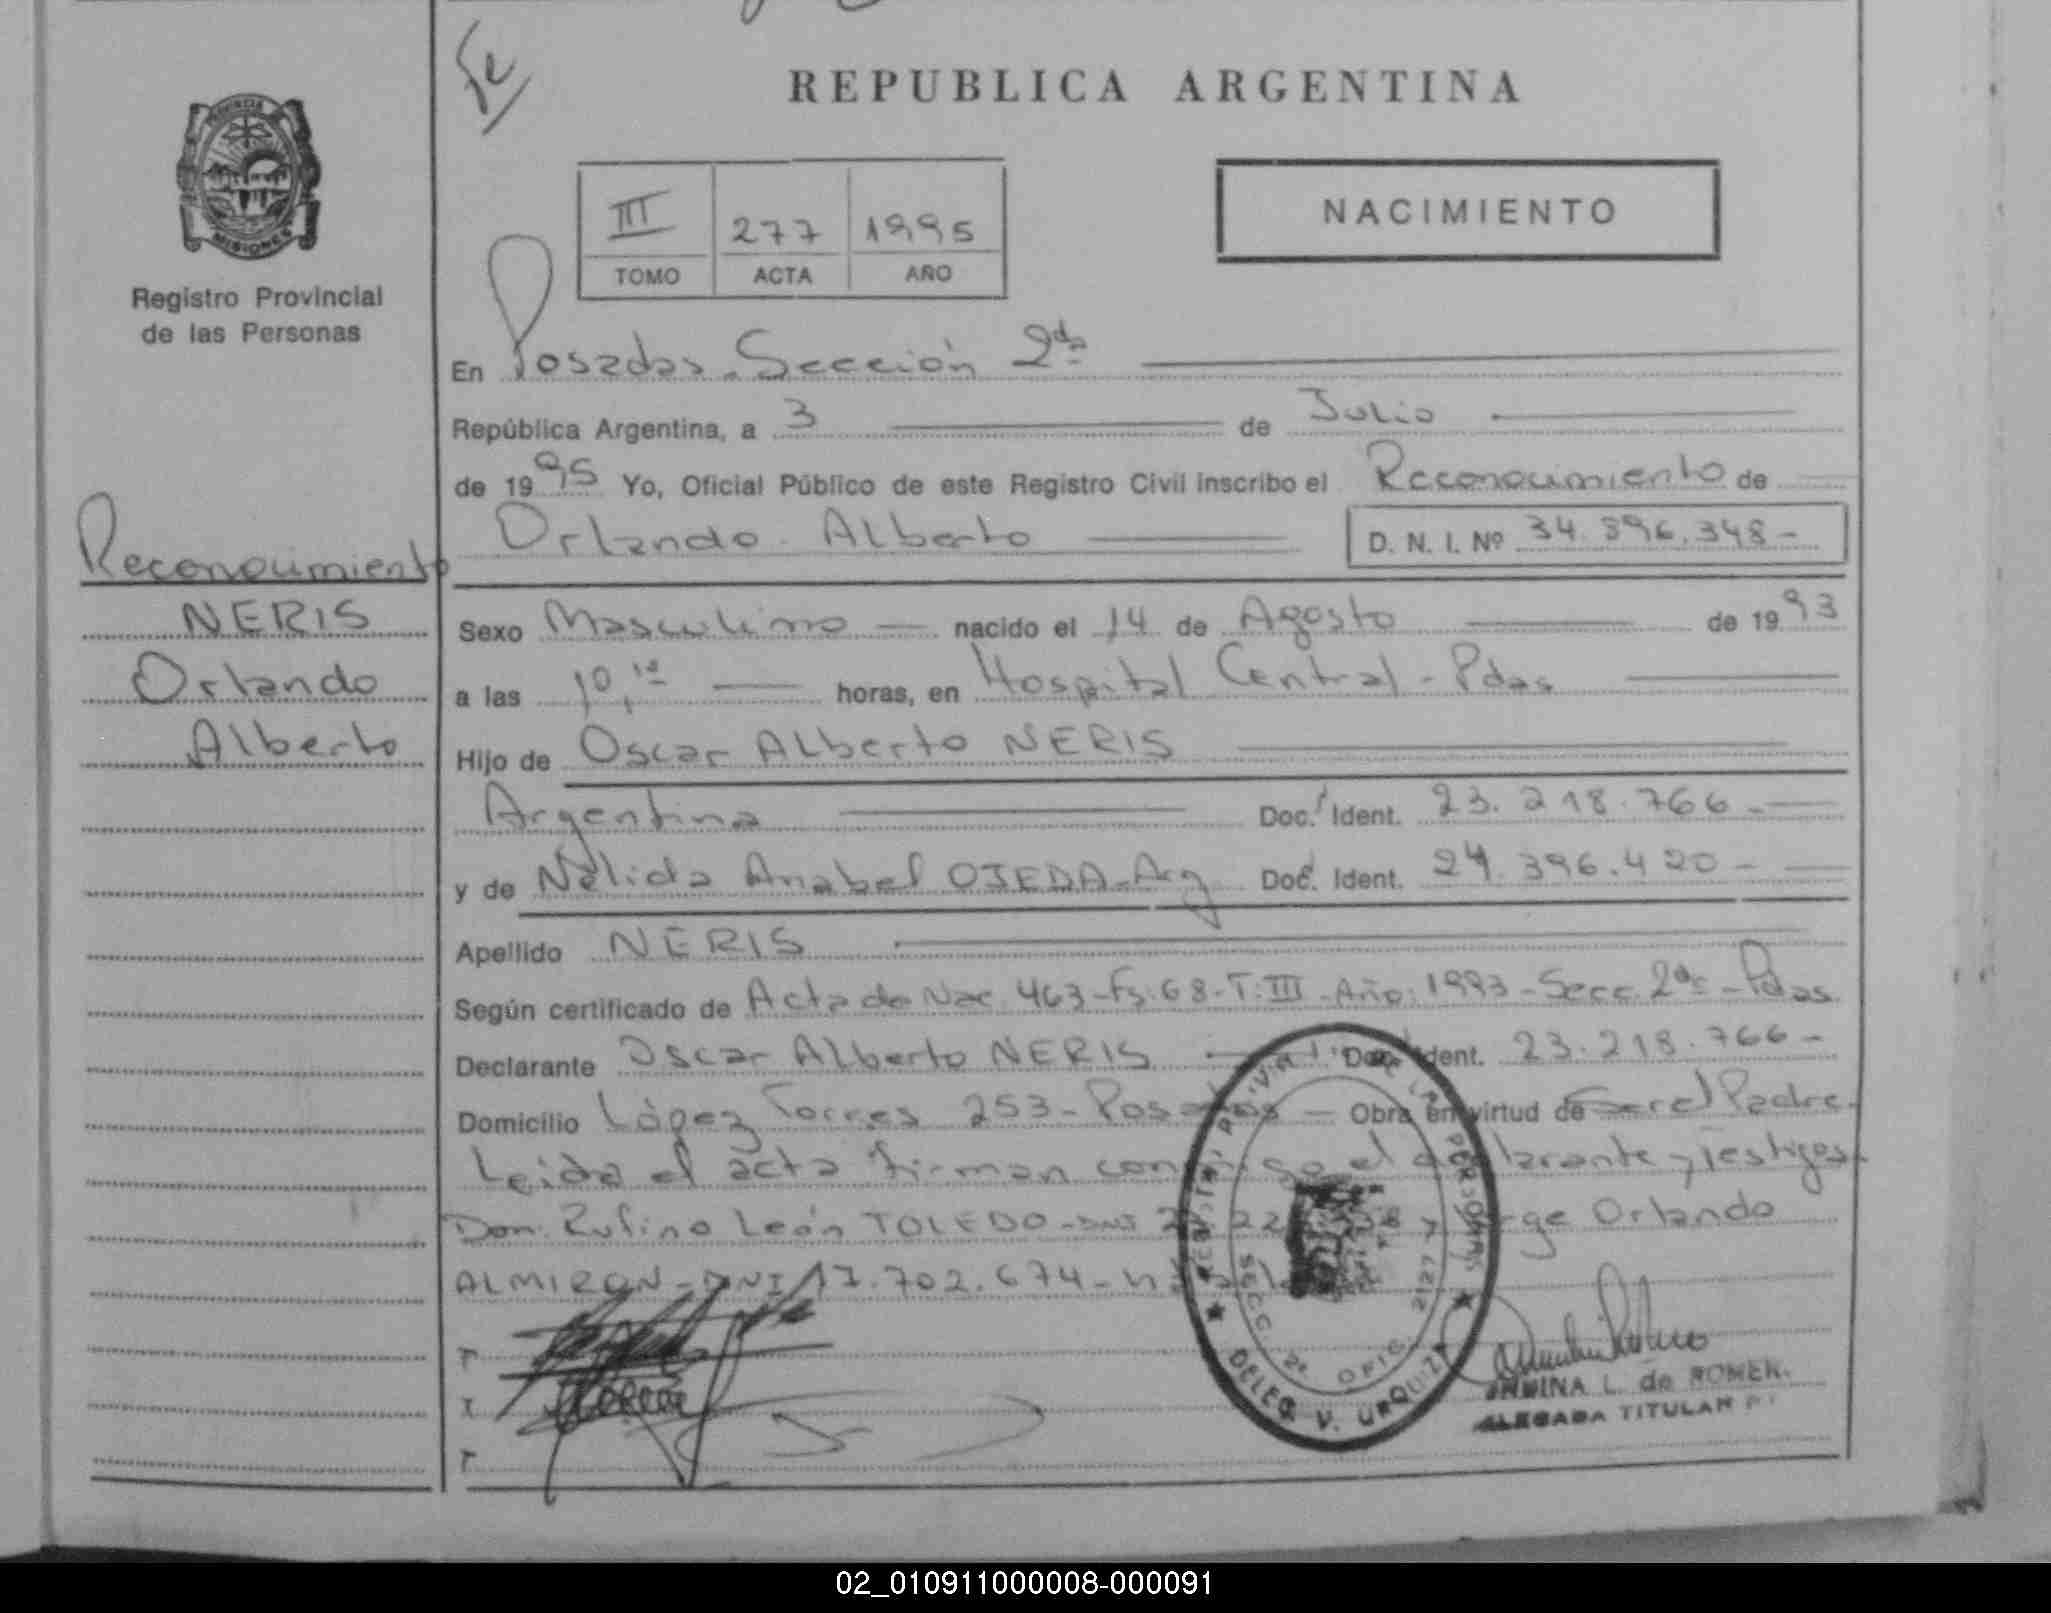 Fe
REPUBLICA ARGENTINA
PROVINCIA
MISIONES
Registro Provincial
de las Personas
III 277 1995
TOMO ACTA AÑO
NACIMIENTO
En Posadas. Sección 2da
República Argentina, a 3 de Julio
de 1995 Yo, Oficial Público de este Registro Civil inscribo el Reconocimiento de
Orlando Alberto D. N. I. Nº 34.896.348-
Reconocimiento
NERIS
Orlando
Alberto
Sexo Masculino nacido el 14 de Agosto de 1993
a las 10,10 horas, en Hospital Central - Pdas
Hijo de Oscar Alberto NERIS
Argentina Doc. Ident. 23.218.766-
y de Nélida Anabel OJEDA-Arg Doc. Ident. 24.396.420-
Apellido NERIS
Según certificado de Acta de Nac. 463-Fs:68-T:III-Año:1993-Secc. 2da-Pdas
Declarante Oscar Alberto NERIS Doc. Ident. 23.218.766-
Domicilio López Torres 253-Posadas - Obra en virtud de Ser el Padre.
Leida el acta firman conmigo el declarante y Testigos
Don: Rufino León TOLEDO-DNI y Jorge Orlando
ALMIRON-DNI 17.702.674-
T
T
DE LAS PERSONAS
SECC. 2ª OFIC. 2127
DELEG V. URQUIZA
L. de ROMER
TITULAR
02_010911000008-000091